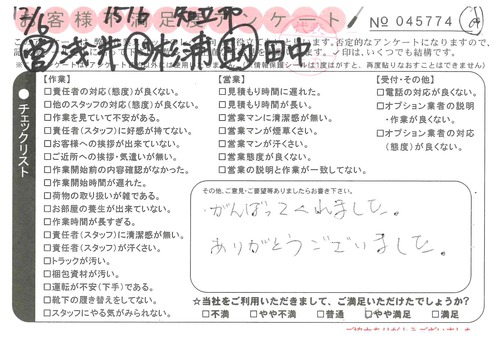 12/6 1516 知立市
お客様満足度アンケート No 045774
営 浅井 杉浦 田中
否定的なアンケートになりますので、
✓印は、いくつでも結構です。
保護シールは1度はがすと、再度貼りなおすことはできません)
●チェックリスト
【作業】
□責任者の対応(態度)が良くない。
□他のスタッフの対応(態度)が良くない。
□作業を見ていて不安がある。
□責任者(スタッフ)に好感が持てない。
□お客様への挨拶が出来ていない。
□ご近所への挨拶・気遣いが無い。
□作業開始前の内容確認がなかった。
□作業開始時間が遅れた。
□荷物の取り扱いが雑である。
□お部屋の養生が出来ていない。
□作業時間が長すぎる。
□責任者(スタッフ)に清潔感が無い。
□責任者(スタッフ)が汗くさい。
□トラックが汚い。
□梱包資材が汚い。
□運転が不安(下手)である。
□靴下の履き替えをしてない。
□スタッフにやる気がみられない。
【営業】
□見積もり時間に遅れた。
□見積もり時間が長い。
□営業マンに清潔感が無い。
□営業マンが煙草くさい。
□営業マンが汗くさい。
□営業態度が良くない。
□営業の説明と作業が一致してない。
【受付・その他】
□電話の対応が良くない。
□オプション業者の説明
・作業が良くない。
□オプション業者の対応
(態度)が良くない。
その他、ご意見・ご要望等ありましたらお書き下さい。
がんばってくれました。
ありがとうございました。
☆当社をご利用いただきまして、ご満足いただけたでしょうか?
□不満 □やや不満 □普通 □やや満足 □満足
ご協力ありがとうございました